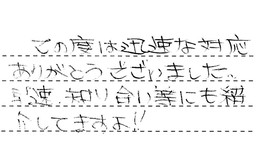 この度は迅速な対応
ありがとうございました。
早速、知り合い等にも紹
介してますよ!!